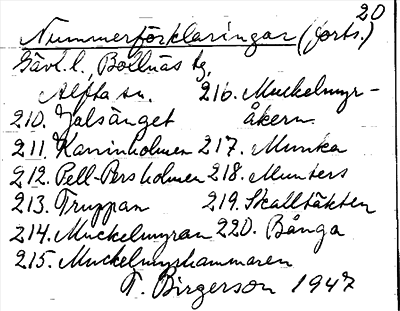 20
Nummerförklaringar (forts.)
Gävl. l., Bollnäs tg,
Alfta sn. 216. Muckelmyr-
210. Jalsänget åkern
211. Kaninholmen 217. Munka
212. Pell-Pers holmen 218. Munters
213. Truppan 219. Skalltäkten
214. Muckelmyran 220. Bånga
215. Muckelmyrhammaren
T. Birgerson 1947